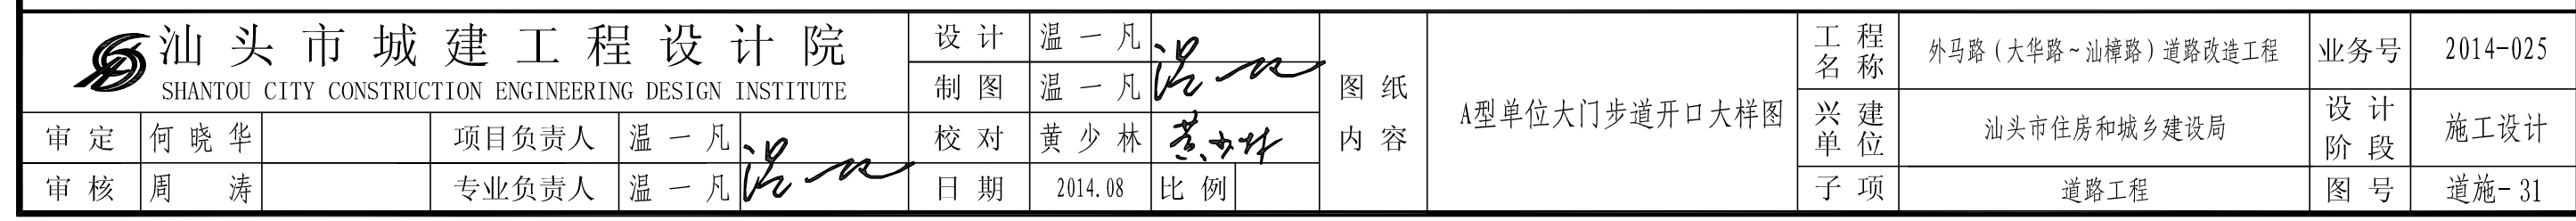 汕头市城建工程设计院
SHANTOU CITY CONSTRUCTION ENGINEERING DESIGN INSTITUTE
审定 何晓华 项目负责人 温一凡
审核 周涛 专业负责人 温一凡
设计 温一凡
制图 温一凡
校对 黄少林 黄少林
日期 2014.08 比例
图纸内容 A型单位大门步道开口大样图
工程名称 外马路（大华路~汕樟路）道路改造工程 业务号 2014-025
兴建单位 汕头市住房和城乡建设局 设计阶段 施工设计
子项 道路工程 图号 道施-31